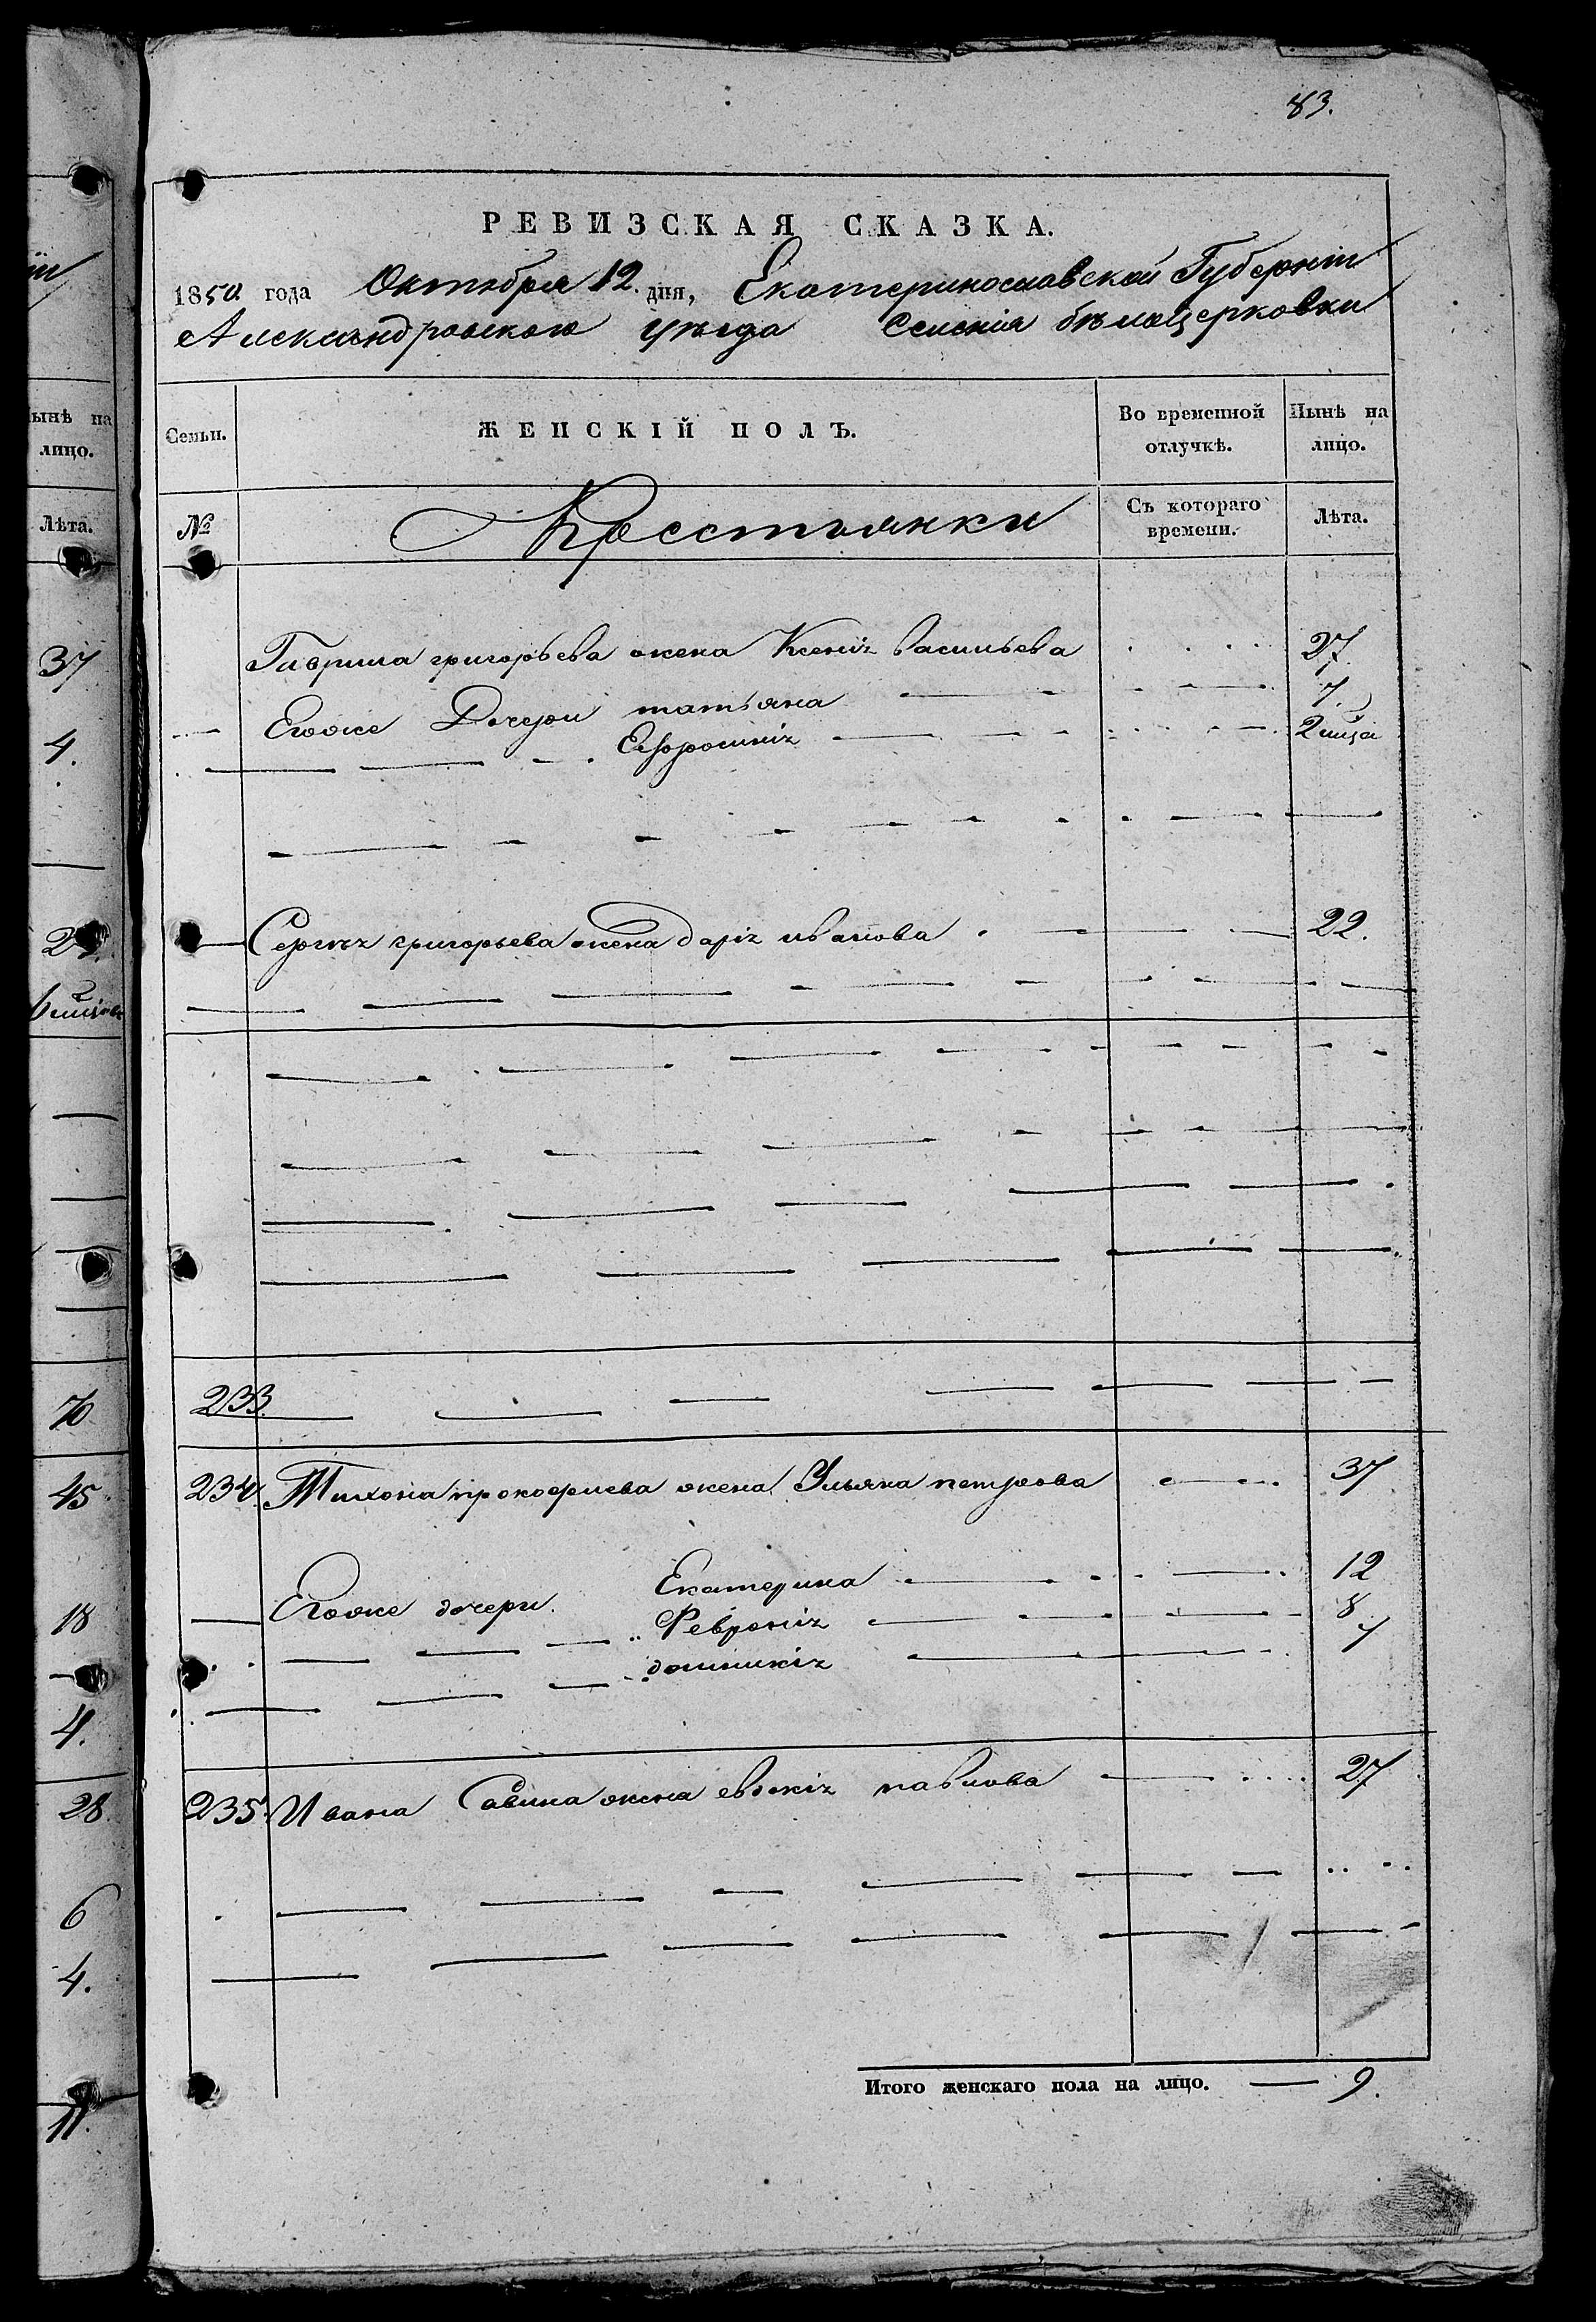 83.
РЕВИЗСКАЯ СКАЗКА.
1850 года Октября 12 дня, Екатеринославской Губерніи
Александровскаго уѣзда Селенія бѣлоцерковки
ынѣ на лицо.
Лѣта.
37
4.
70
45
18
4.
28.
6
4.
11.
Семьи. ЖЕНСКІЙ ПОЛЪ. Во временной отлучкѣ. Нынѣ на лицо.
№ Кресстьянки Съ котораго времени. Лѣта.
Гаврила григорьева жена Ксенія васильева 27.
Егоже Дочери татьяна 7.
Ефросинія 2 мѣся
Сергѣя григорьева жена дарія иванова 22.
233.
234. Тихона прокофиева жена Ульяна петрова 37
Егоже дочери. Екатерина 12
Февронія 8
домникія 7
235. Ивана Савина жена евдокія павлова 27
Итого женскаго пола на лицо. — 9.